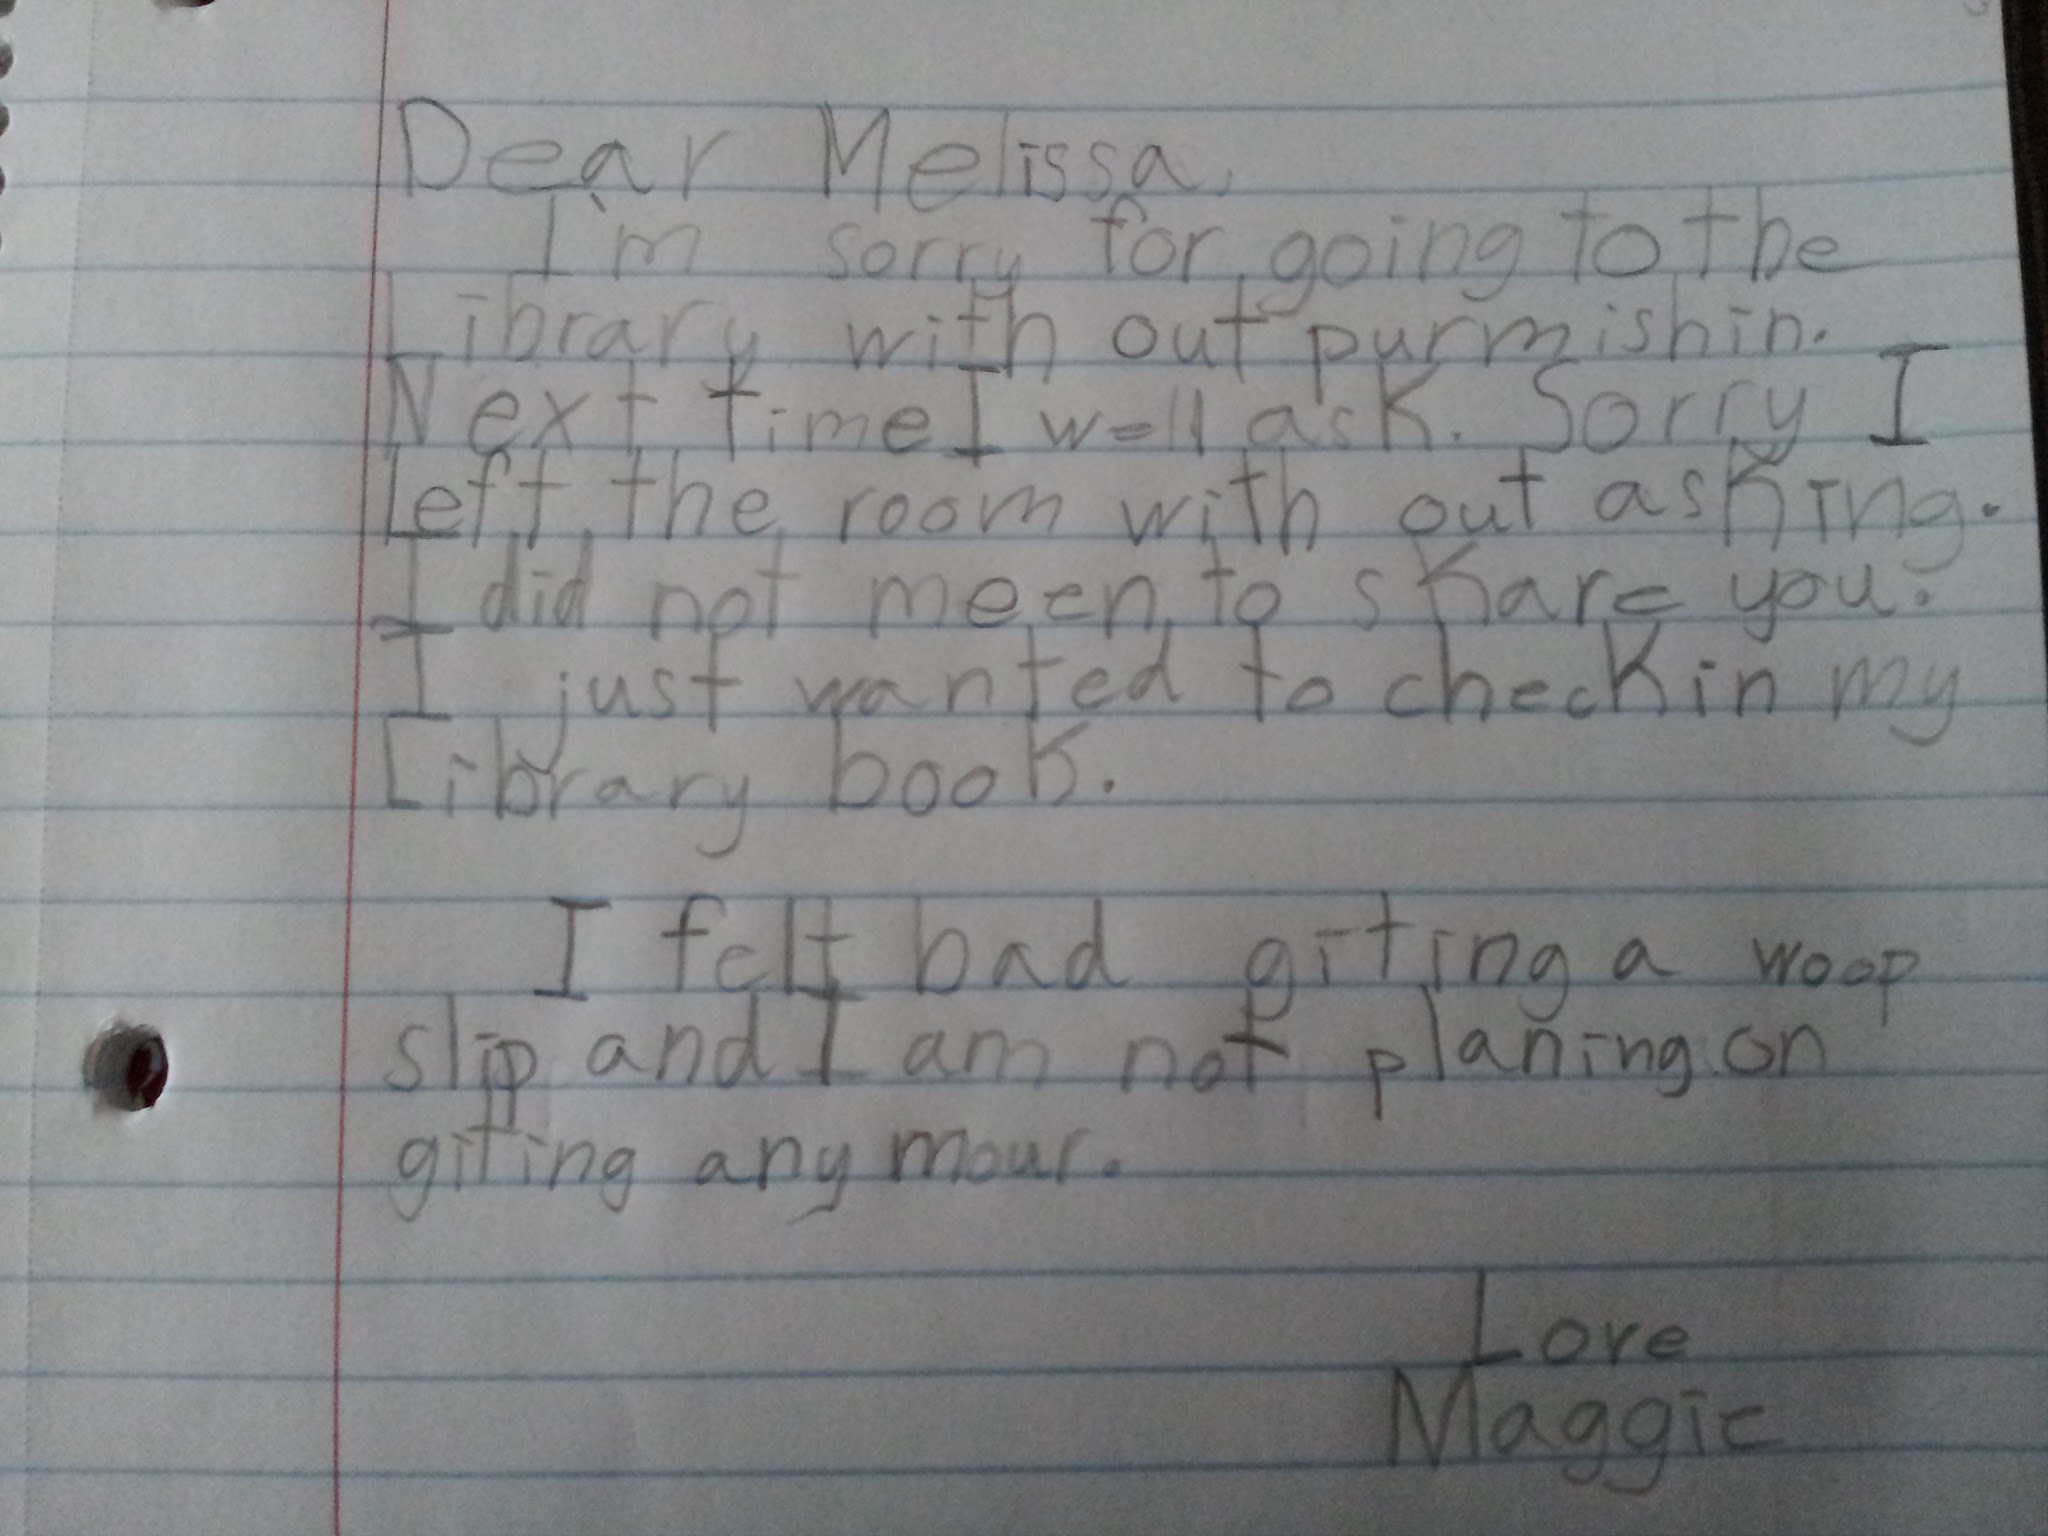 Dear Melissa,
I'm sorry for going to the
Library with out purmishin.
Next time I well ask. Sorry I
Left the room with out asking.
I did not meen to skare you.
I just wanted to check in my
Library book.
I felt bad giting a woop
slip and I am not planing on
giting any mour.
Love
Maggie